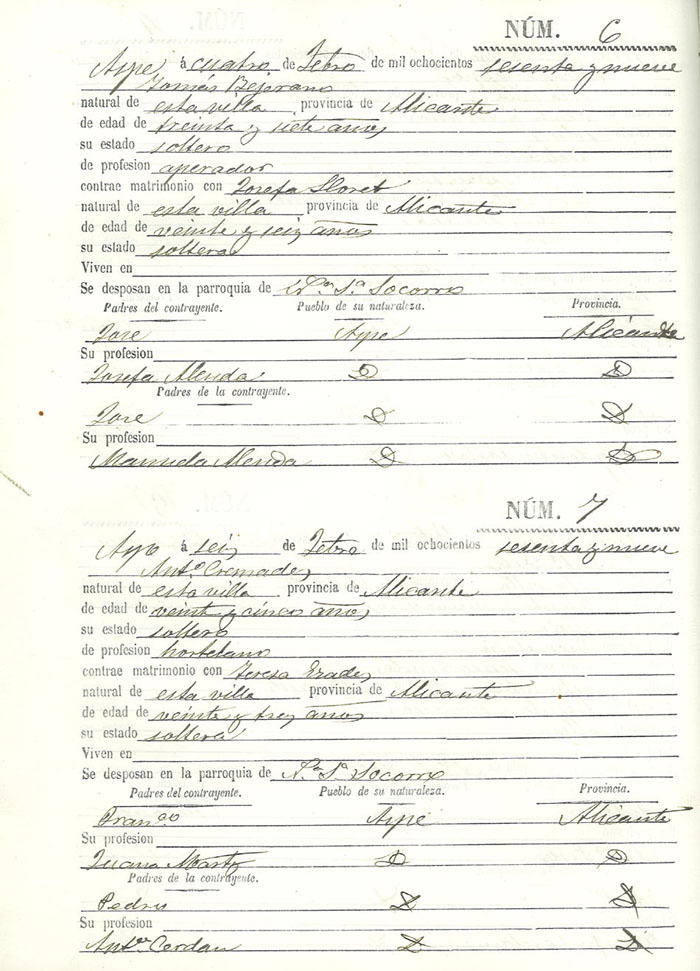 NÚM. 6
Aspe á cuatro de Febro de mil ochocientos sesenta y nueve
Tomás Bejerano
natural de esta villa provincia de Alicante
de edad de treinta y siete años
su estado soltero
de profesion aperador
contrae matrimonio con Josefa Lloret
natural de esta villa, provincia de Alicante
de edad de veinte y seis años
su estado soltera
Viven en
Se desposan en la parroquia de Nª Sª Socorro
Padres del contrayente. Pueblo de su naturaleza. Provincia.
Jose Aspe Alicante
Su profesion
Josefa Almida D D
Padres de la contrayente.
Jose D D
Su profesion
Manuela Almida D D
NÚM. 7
Aspe á seis de Febro de mil ochocientos sesenta y nueve
Antº Cremades
natural de esta villa provincia de Alicante
de edad de veinte y cinco años
su estado soltero
de profesion hortelano
contrae matrimonio con Teresa Erades
natural de esta villa provincia de Alicante
de edad de veinte y tres años
su estado soltera
Viven en
Se desposan en la parroquia de Nª Sª Socorro
Padres del contrayente. Pueblo de su naturaleza. Provincia.
Francº Aspe Alicante
Su profesion
Juana Martz D D
Padres de la contrayente.
Pedro D D
Su profesion
Antª Cerdan D D